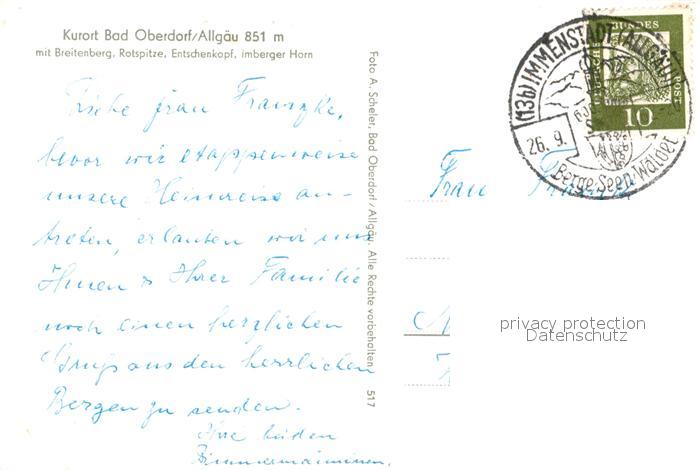 Kurort Bad Oberdorf/Allgäu 851 m
mit Breitenberg, Rotspitze, Entschenkopf, imberger Horn
Frau
bevor wir etappenweise
unsere Heimreise an-
treten, erlauben wir uns
Ihnen & Ihrer Familie
noch einen herzlichen
Gruß aus den herrlichen
Bergen zu senden.
Ihre beiden
Foto A. Scheler, Bad Oberdorf/Allgäu. Alle Rechte vorbehalten 517
(13b) IMMENSTADT (ALLGÄU)
26. 9.
Berge Seen Wälder
DEUTSCHE BUNDESPOST
10
Frau
privacy protection
Datenschutz